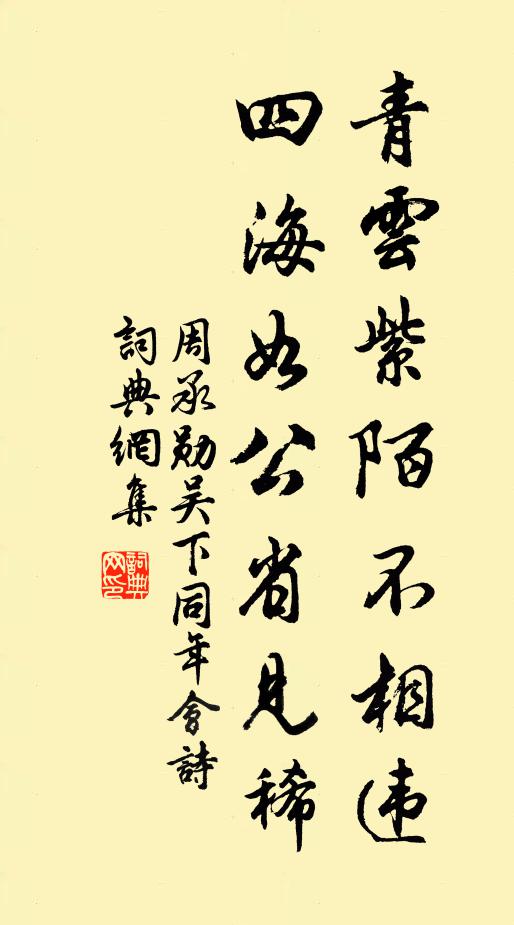 青雲紫陌不相违
四海如公省見稀
周承勛吴下同年會詩
詞典網集
詞典网印